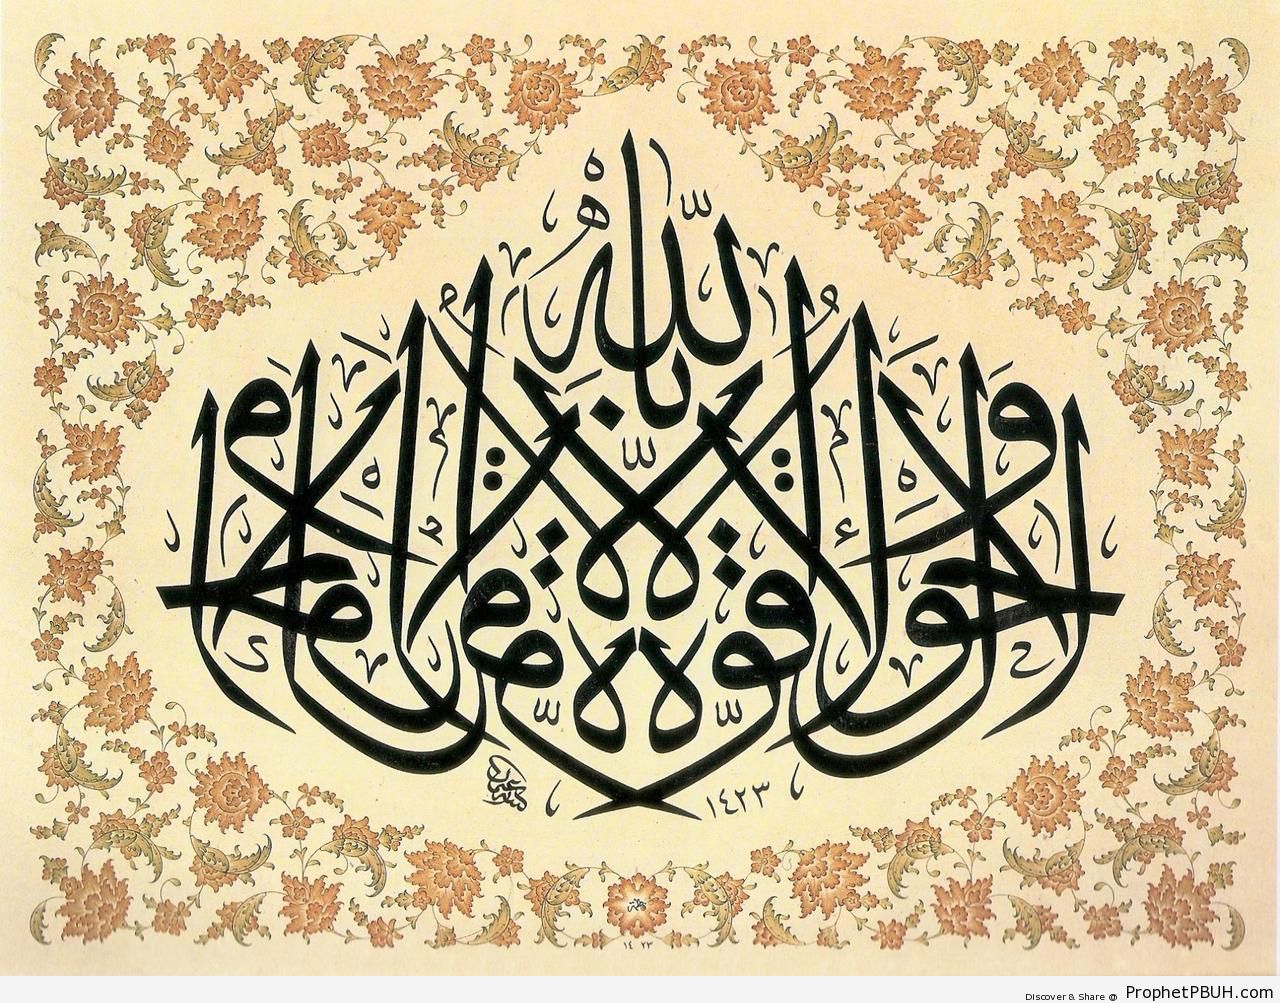 لا حول ولا قوة إلا بالله
١٤٢٣
١٤٢٣
Discover & Share @ ProphetPBUH.com